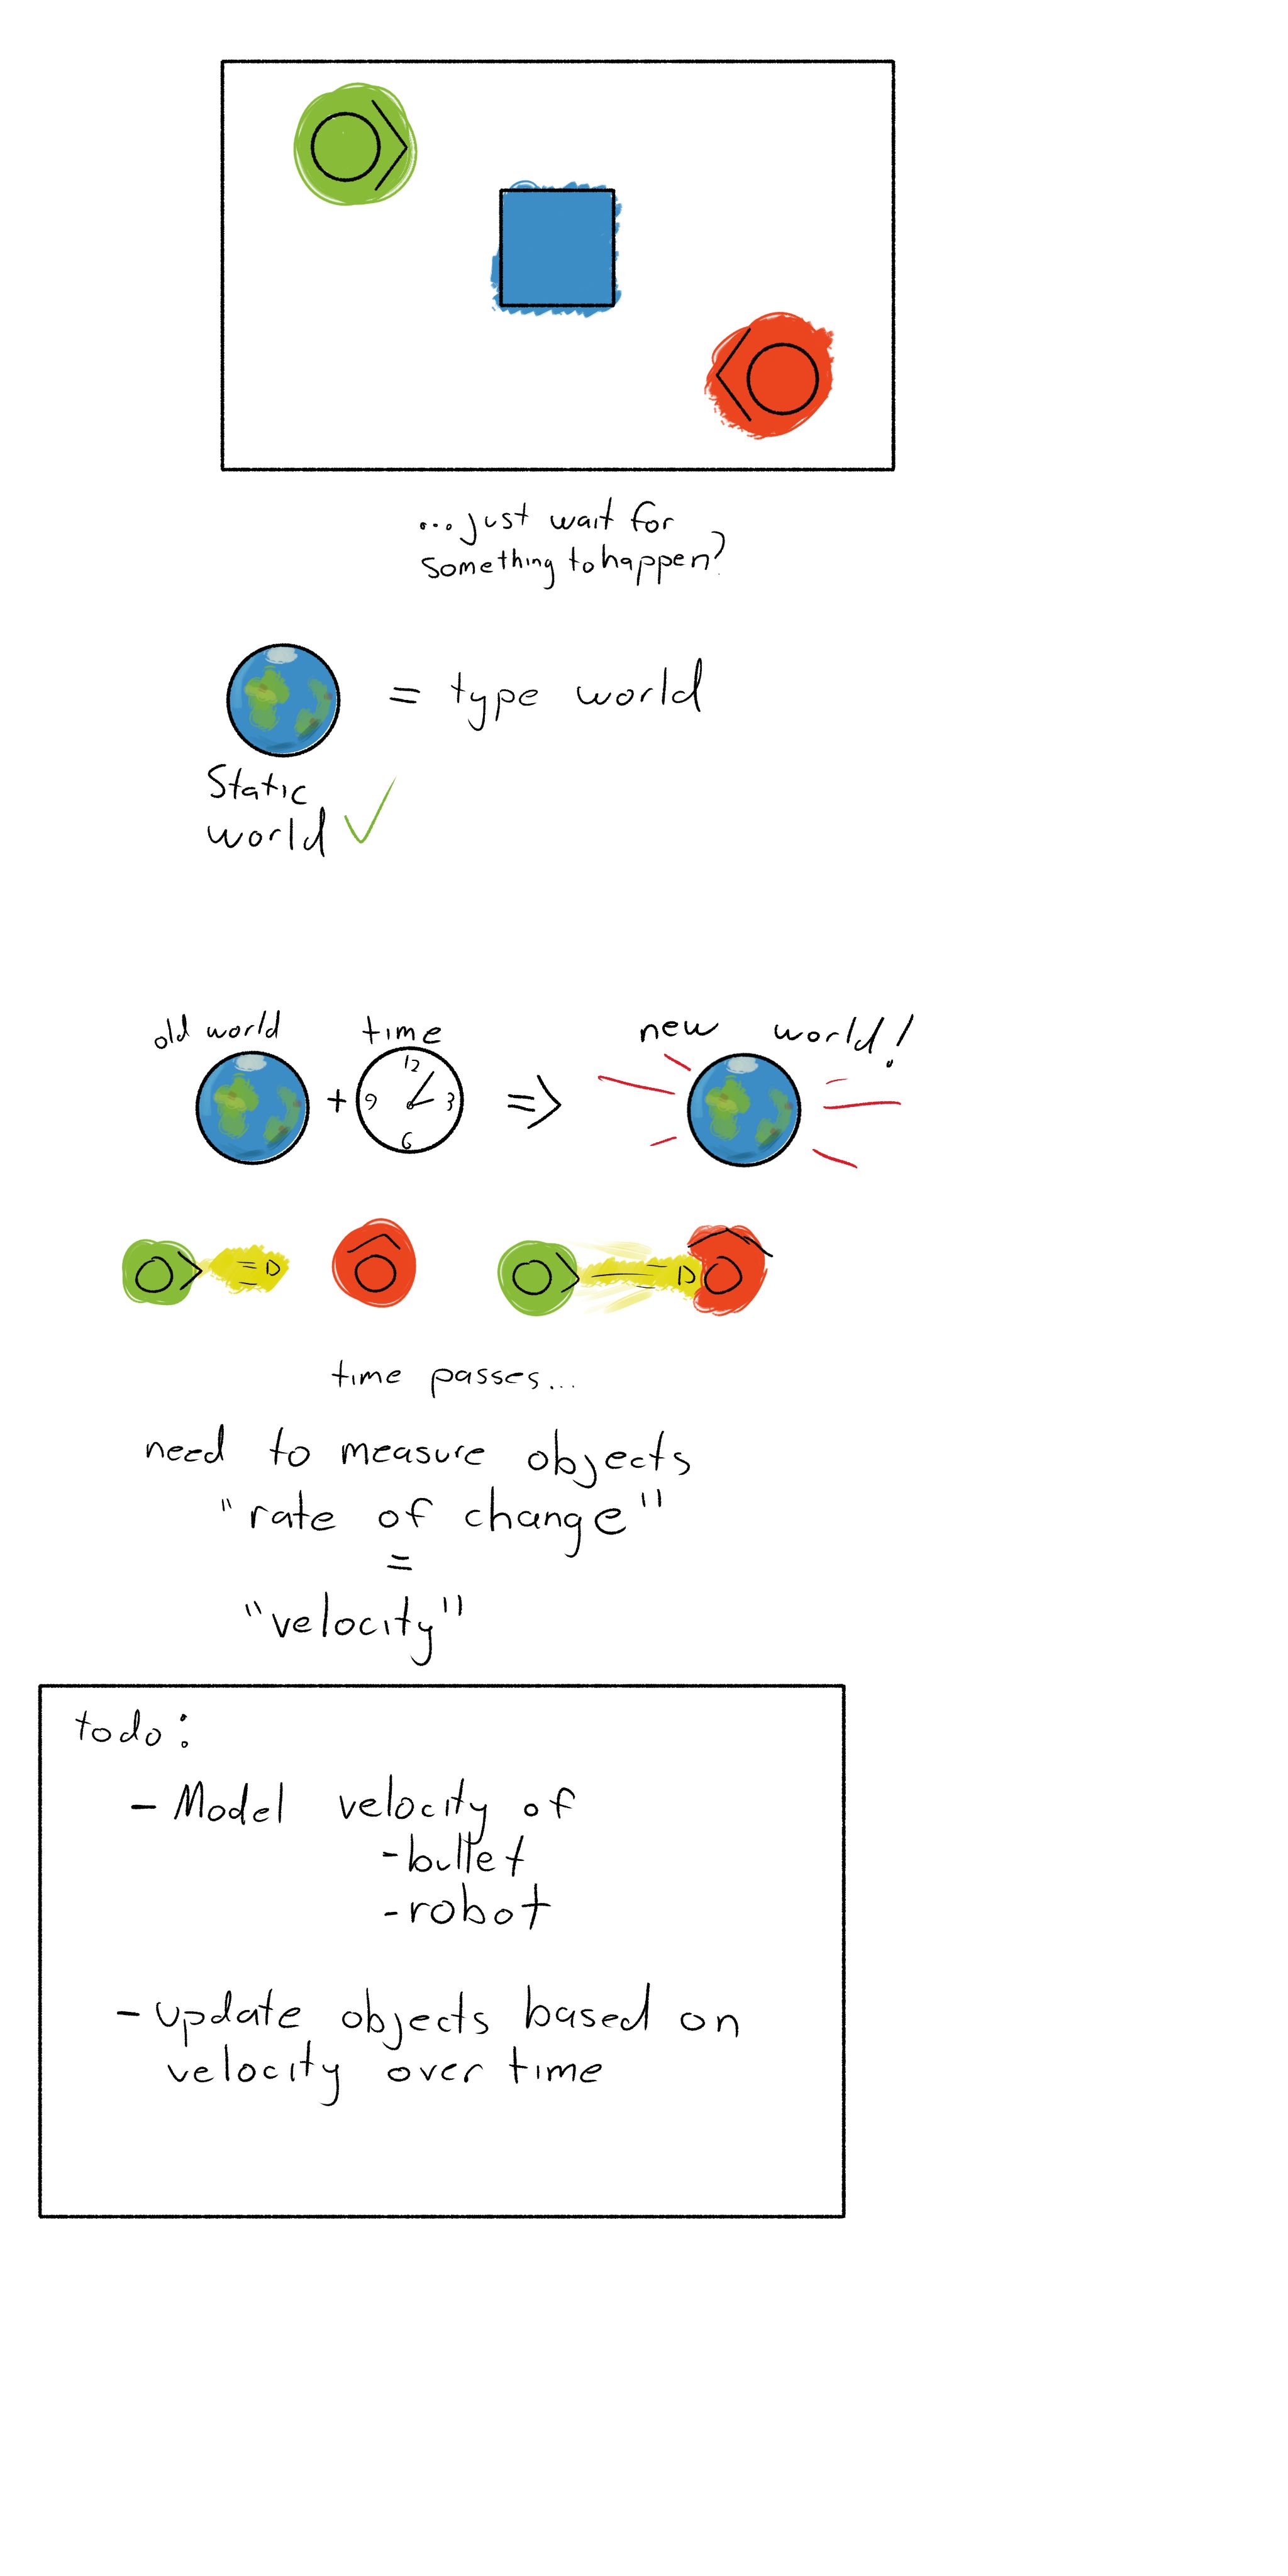 ...just wait for
something to happen?
= type world
Static
world
old world
time
new world!
+
12
9
3
6
=>
time passes...
need to measure objects
"rate of change"
=
"velocity"
todo:
- Model velocity of
- bullet
- robot
- update objects based on
velocity over time